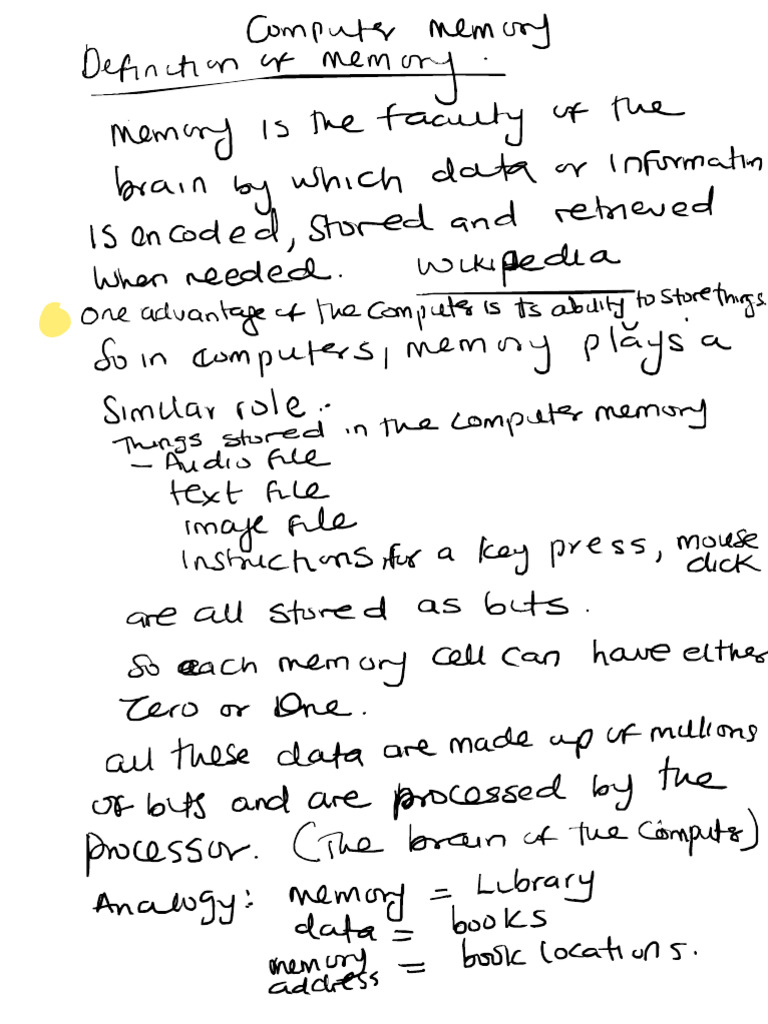 Computer memory
Definition of memory.
Memory is the faculty of the
brain by which data or information
is encoded, stored and retrieved
when needed. Wikipedia
One advantage of the computer is its ability to store things.
So in computers, memory plays a
similar role.
Things stored in the computer memory
- Audio file
text file
image file
Instructions, for a key press, mouse
click
are all stored as bits.
So each memory cell can have either
zero or One.
all these data are made up of millions
of bits and are processed by the
processor. (The brain of the computer)
Analogy: memory = Library
data = books
memory
address = book locations.